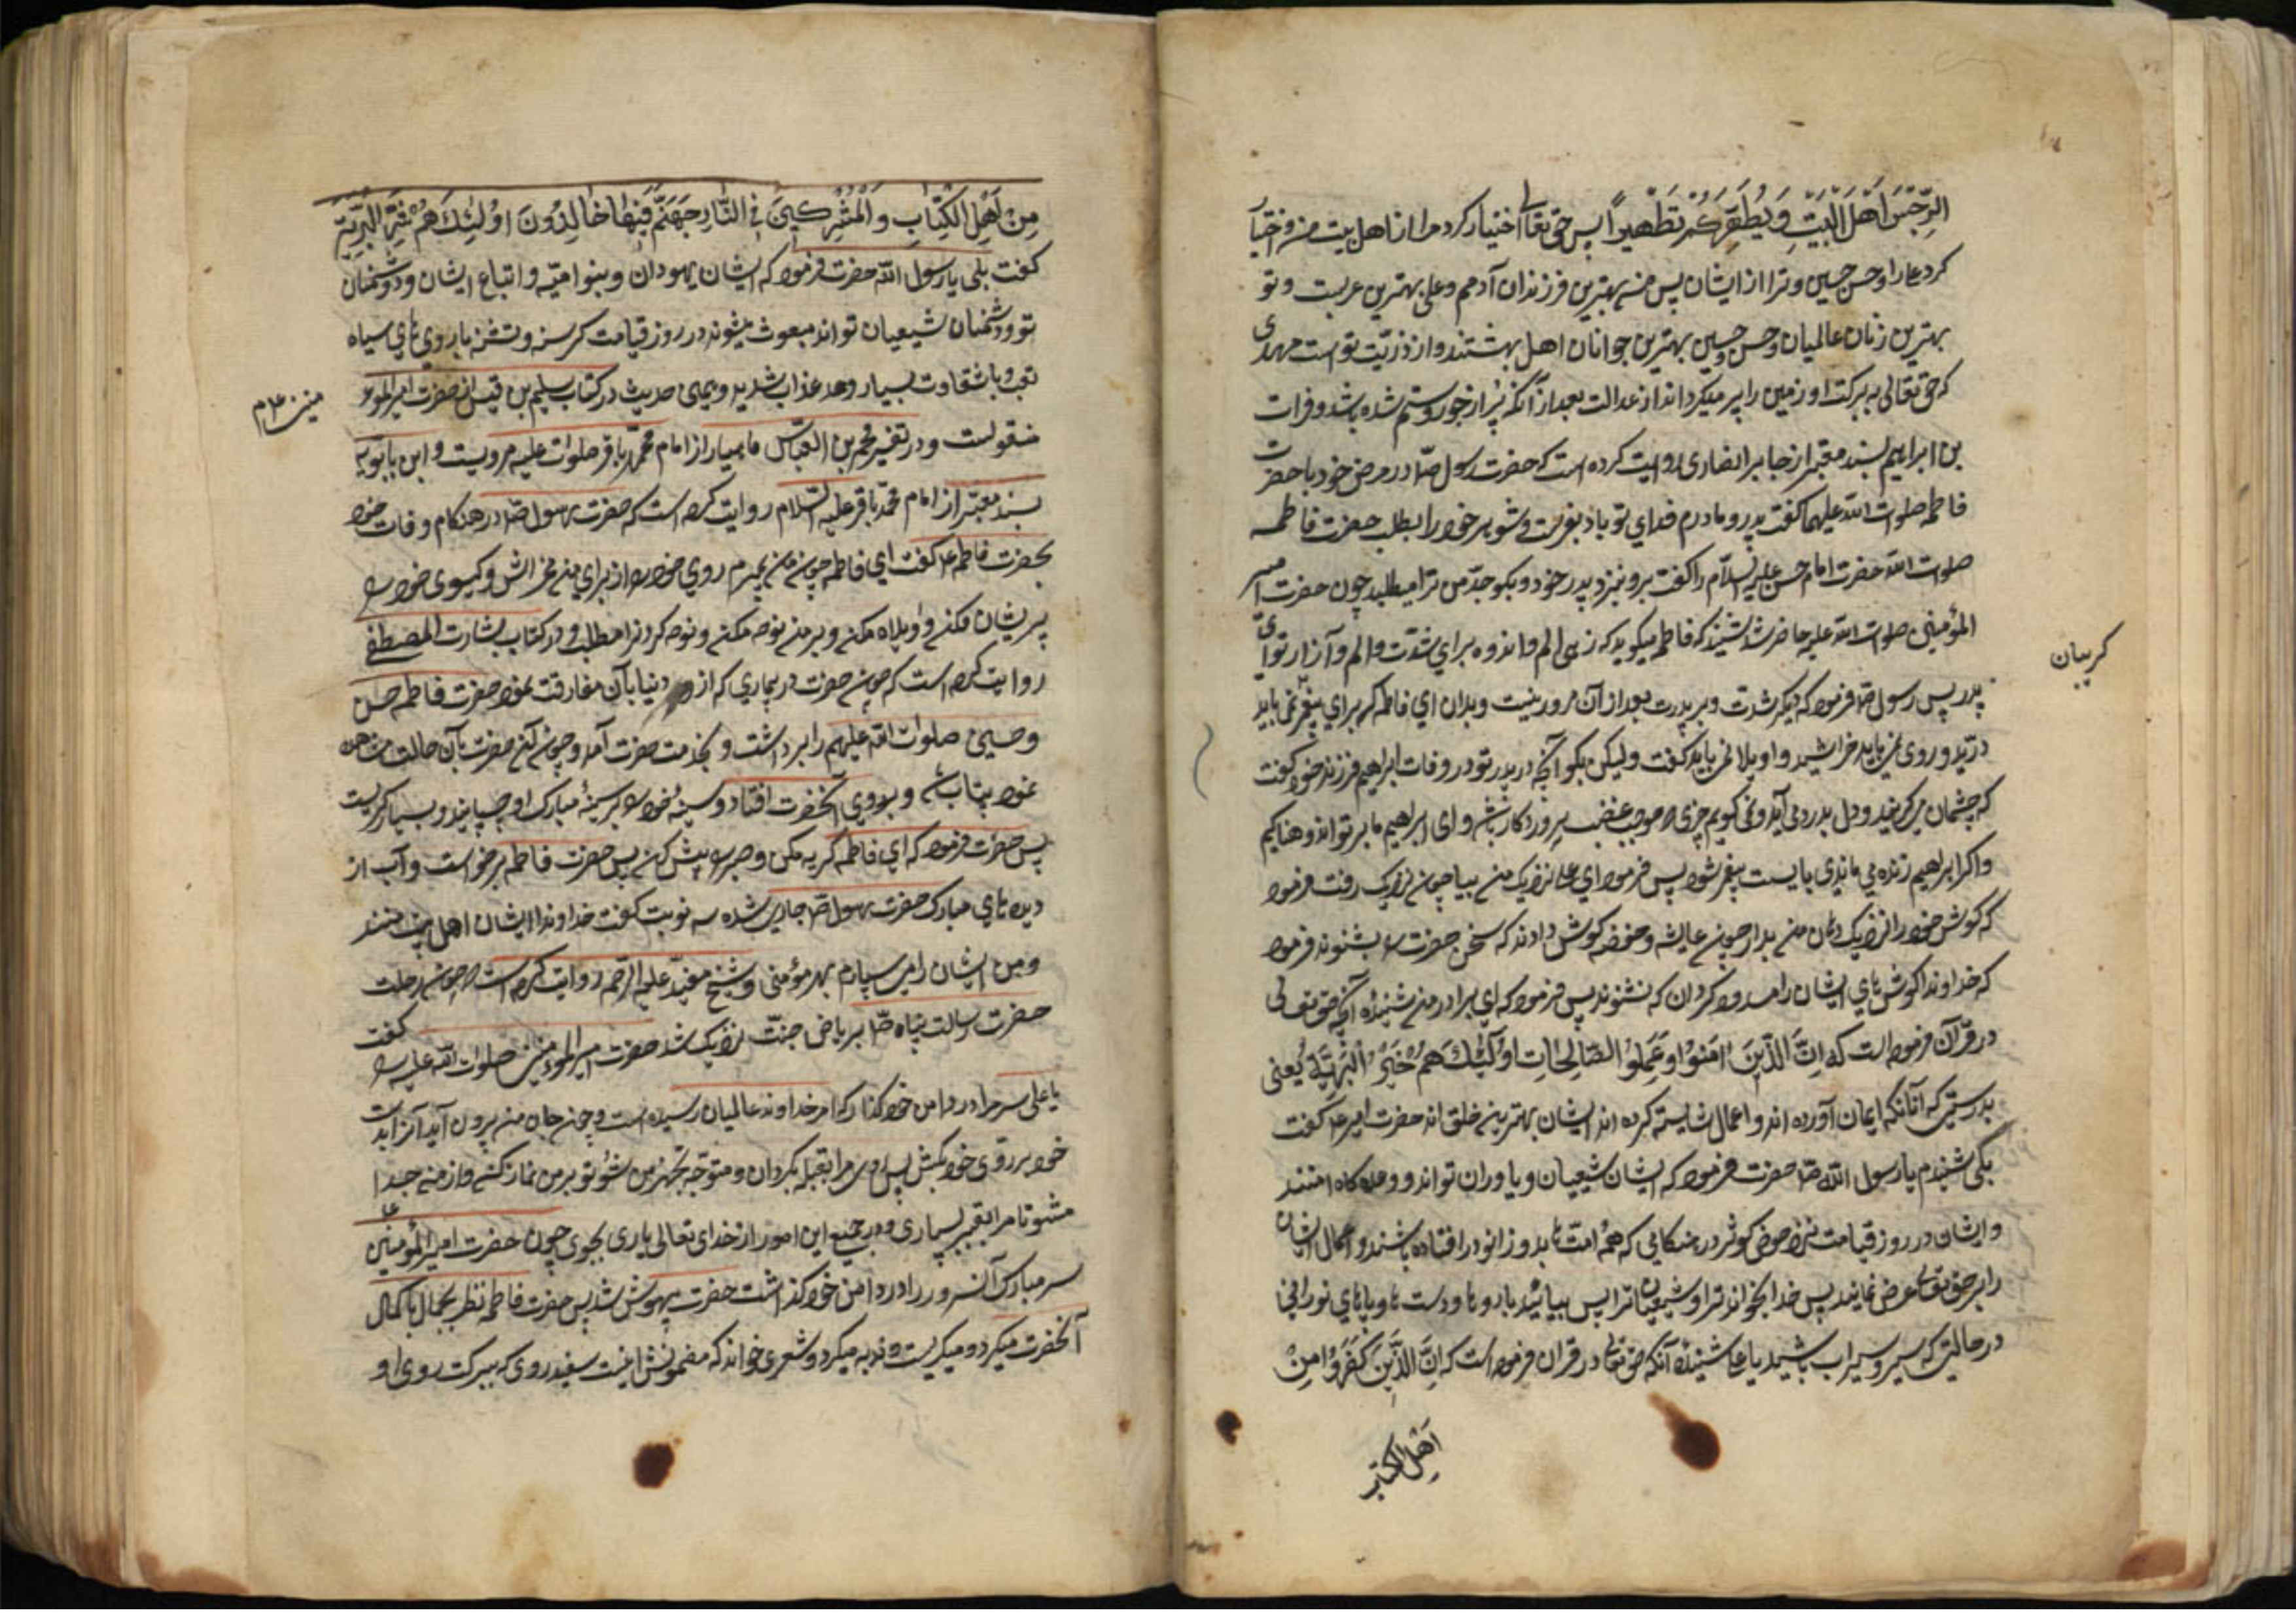 الرِّجْسَ اَهْلَ الْبَيْتِ وَيُطَهِّرَكُمْ تَطْهيراً پس حق تعالی اختیار کرد مرا از اهل بیت من و اختیا
کرد علی را و حسن و حسین و ترا از ایشان پس من بهترین فرزندان آدمم و علی بهترین عربست و تو
بهترین زنان عالمیان و حسن و حسین بهترین جوانان اهل بهشتند و از ذریّت تو است مهدی
که حق تعالی به برکت او زمین را پر میکرداند از عدالت بعد از آنکه پر از جور و ستم شده باشد و فرات
بن ابراهیم بسند معتبر از جابر انصاری روایت کرده است که حضرت رسول صلی در مرض خود با حضرت
فاطمه صلوات الله علیهما کفت پدر و مادرم فدای تو باد بفرست و شوهر خود را بطلب حضرت فاطمه
صلوات الله حضرت امام حسن علیه السلام را کفت برو بنزد پدر خود و بکو جدّ من ترا میطلبد چون حضرت امیر
المؤمنین صلوات الله علیه حاضر شد شنیذ که فاطمه میکوید که زهی الم و اندوه برای شدّت و الم و آزار تو ای
کریبان
پدر پس رسول ص فرمود که دیکر شدت و بر پدرت بعد از آن روز نیست و بدان ای فاطمه که برای پیغمبر نمی باید
درید و روی نمی باید خراشید و واویلا نمی باید کفت ولیکن بکو آنچه پدر تو در وفات ابراهیم فرزند خود کفت
که چشمان می کریند و دل بدرد می آید و نمی کویم چیزی که موجب غضب پروردکار باشد و ای ابراهیم ما بر تو اندوهناکیم
و اکر ابراهیم زنده می ماندی بایست پیغمبر شود پس فرمود ای علی نزدیک من بیا چون نزدیک رفت فرمود
که کوش خود را نزدیک دهان من بدار چون عایشه و حفصه کوش دادند که سخن حضرت را بشنوند فرمود
که خداوندا کوش های ایشان را مسدود کردان که نشنوند پس فرمود که ای برادر من شنیدهٔ آنچه حق تعالی
در قرآن فرموده است که اِنَّ الَّذينَ امَنُوا وَعَمِلُوا الصّالِحاتِ اُولٰئِكَ هُمْ خَيْرُ الْبَرِيَّةِ یعنی
بدرستی که آنانکه ایمان آورده اند و اعمال شایسته کرده اند ایشان بهترین خلق اند حضرت امیر ع کفت
بلی شنیدم یا رسول الله ص حضرت فرمود که ایشان شیعیان و یاوران تو اند و وعده کاه
و ایشان در روز قیامت نزد حوض کوثر در هنکامی که همهٔ امتّ ها بدو زانو در افتاده باشند و اعمال ایشان
را بر حق تعالی عرض نمایند پس خدا بخواند ترا و شیعیان ترا پس بیائید با رو ها و دست ها و پاهای نورانی
در حالتی که سیر و سیراب باشید یا علی شنیدهٔ آنکه حق تعالی در قران فرموده است که اِنَّ الَّذينَ كَفَرُوا مِنْ
اَهْلِ الكتٰب
مِنْ اَهْلِ الْكِتابِ وَالْمُشْرِكينَ في النّارِ جَهَنَّمَ فيها خالِدُونَ اُولٰئِكَ هُمْ شَرُّ الْبَرِيَّةِ
کفت بلی یا رسول الله حضرت فرمود که ایشان یهودان و بنو امیّه و اتباع ایشان و دشمنان
تو و دشمنان شیعیان تواند مبعوث میشوند در روز قیامت کرسنه و تشنه با روی های سیاه
تعب و با شقاوت بسیار و عذاب شدید و همین حدیث در کتاب سلیم بن قیس از حضرت امیر المؤ
منین ع م
منقولست و در تفسیر محمد بن العباس ماهیار از امام محمد باقر صلوات علیه مرویست و ابن بابویه
بسند معتبر از امام محمد باقر علیه السّلام روایت کرده است که حضرت رسول ص در هنکام وفات خود
بحضرت فاطمه ع کفت ای فاطمه چون من بمیرم روی خود را از برای من مخراش و کیسوی خود را
پریشان مکن و واویلاه مکن و بر من نوحه مکن و نوحه کردنرا مطلب و در کتاب بشارت المصطفی
روایت کرده است که چون حضرت در بیماری که از دنیا بآن مفارقت نمود حضرت فاطمه حسن
و حسین صلوات الله علیهم را برداشت و بخدمت حضرت آمد و چون آن حضرت بآن حالت مشاهده
نمود بیتاب و بروی آنحضرت افتاد و سینهٔ خود را بر سینهٔ مبارک او چسپانید و بسیار کریست
پس حضرت فرمود که ای فاطمه کریه مکن و صبر را پیش کن پس حضرت فاطمه برخواست و آب از
دیده های مبارک حضرت رسول ص جاری شده سه نوبت کفت خداوندا ایشان اهل بیت منند
و من ایشان را می سپارم بهر مؤمنی و شیخ مفید علیه الرّحمه روایت کرده است که چون رحلت
حضرت رسالت پناه ص بریاض جنّت نزدیک شد حضرت امیر المؤمنین صلوات الله علیه را کفت
یا علی سر مرا در دامن خود کذار که امر خداوند عالمیان رسیده است و چون جان من بیرون آید آنرا بدست
خود بر روی خود بکش پس روی مرا بقبله بکردان و متوجّه تجهیز من شو و تو بر من نماز کن و از من جدا
مشو تا مرا بقبر بسپاری و در جمیع این امور از خدای تعالی یاری بجوی چون حضرت امیر المؤمنین ع
سر مبارک آنسرور را در دامن خود کذاشت حضرت بیهوش شد پس حضرت فاطمه نظر بجمال با کمال
آنحضرت میکرد و میکریست و ندبه میکرد و شعری خواند که مضمونش اینست سفید روی که ببرکت روی او